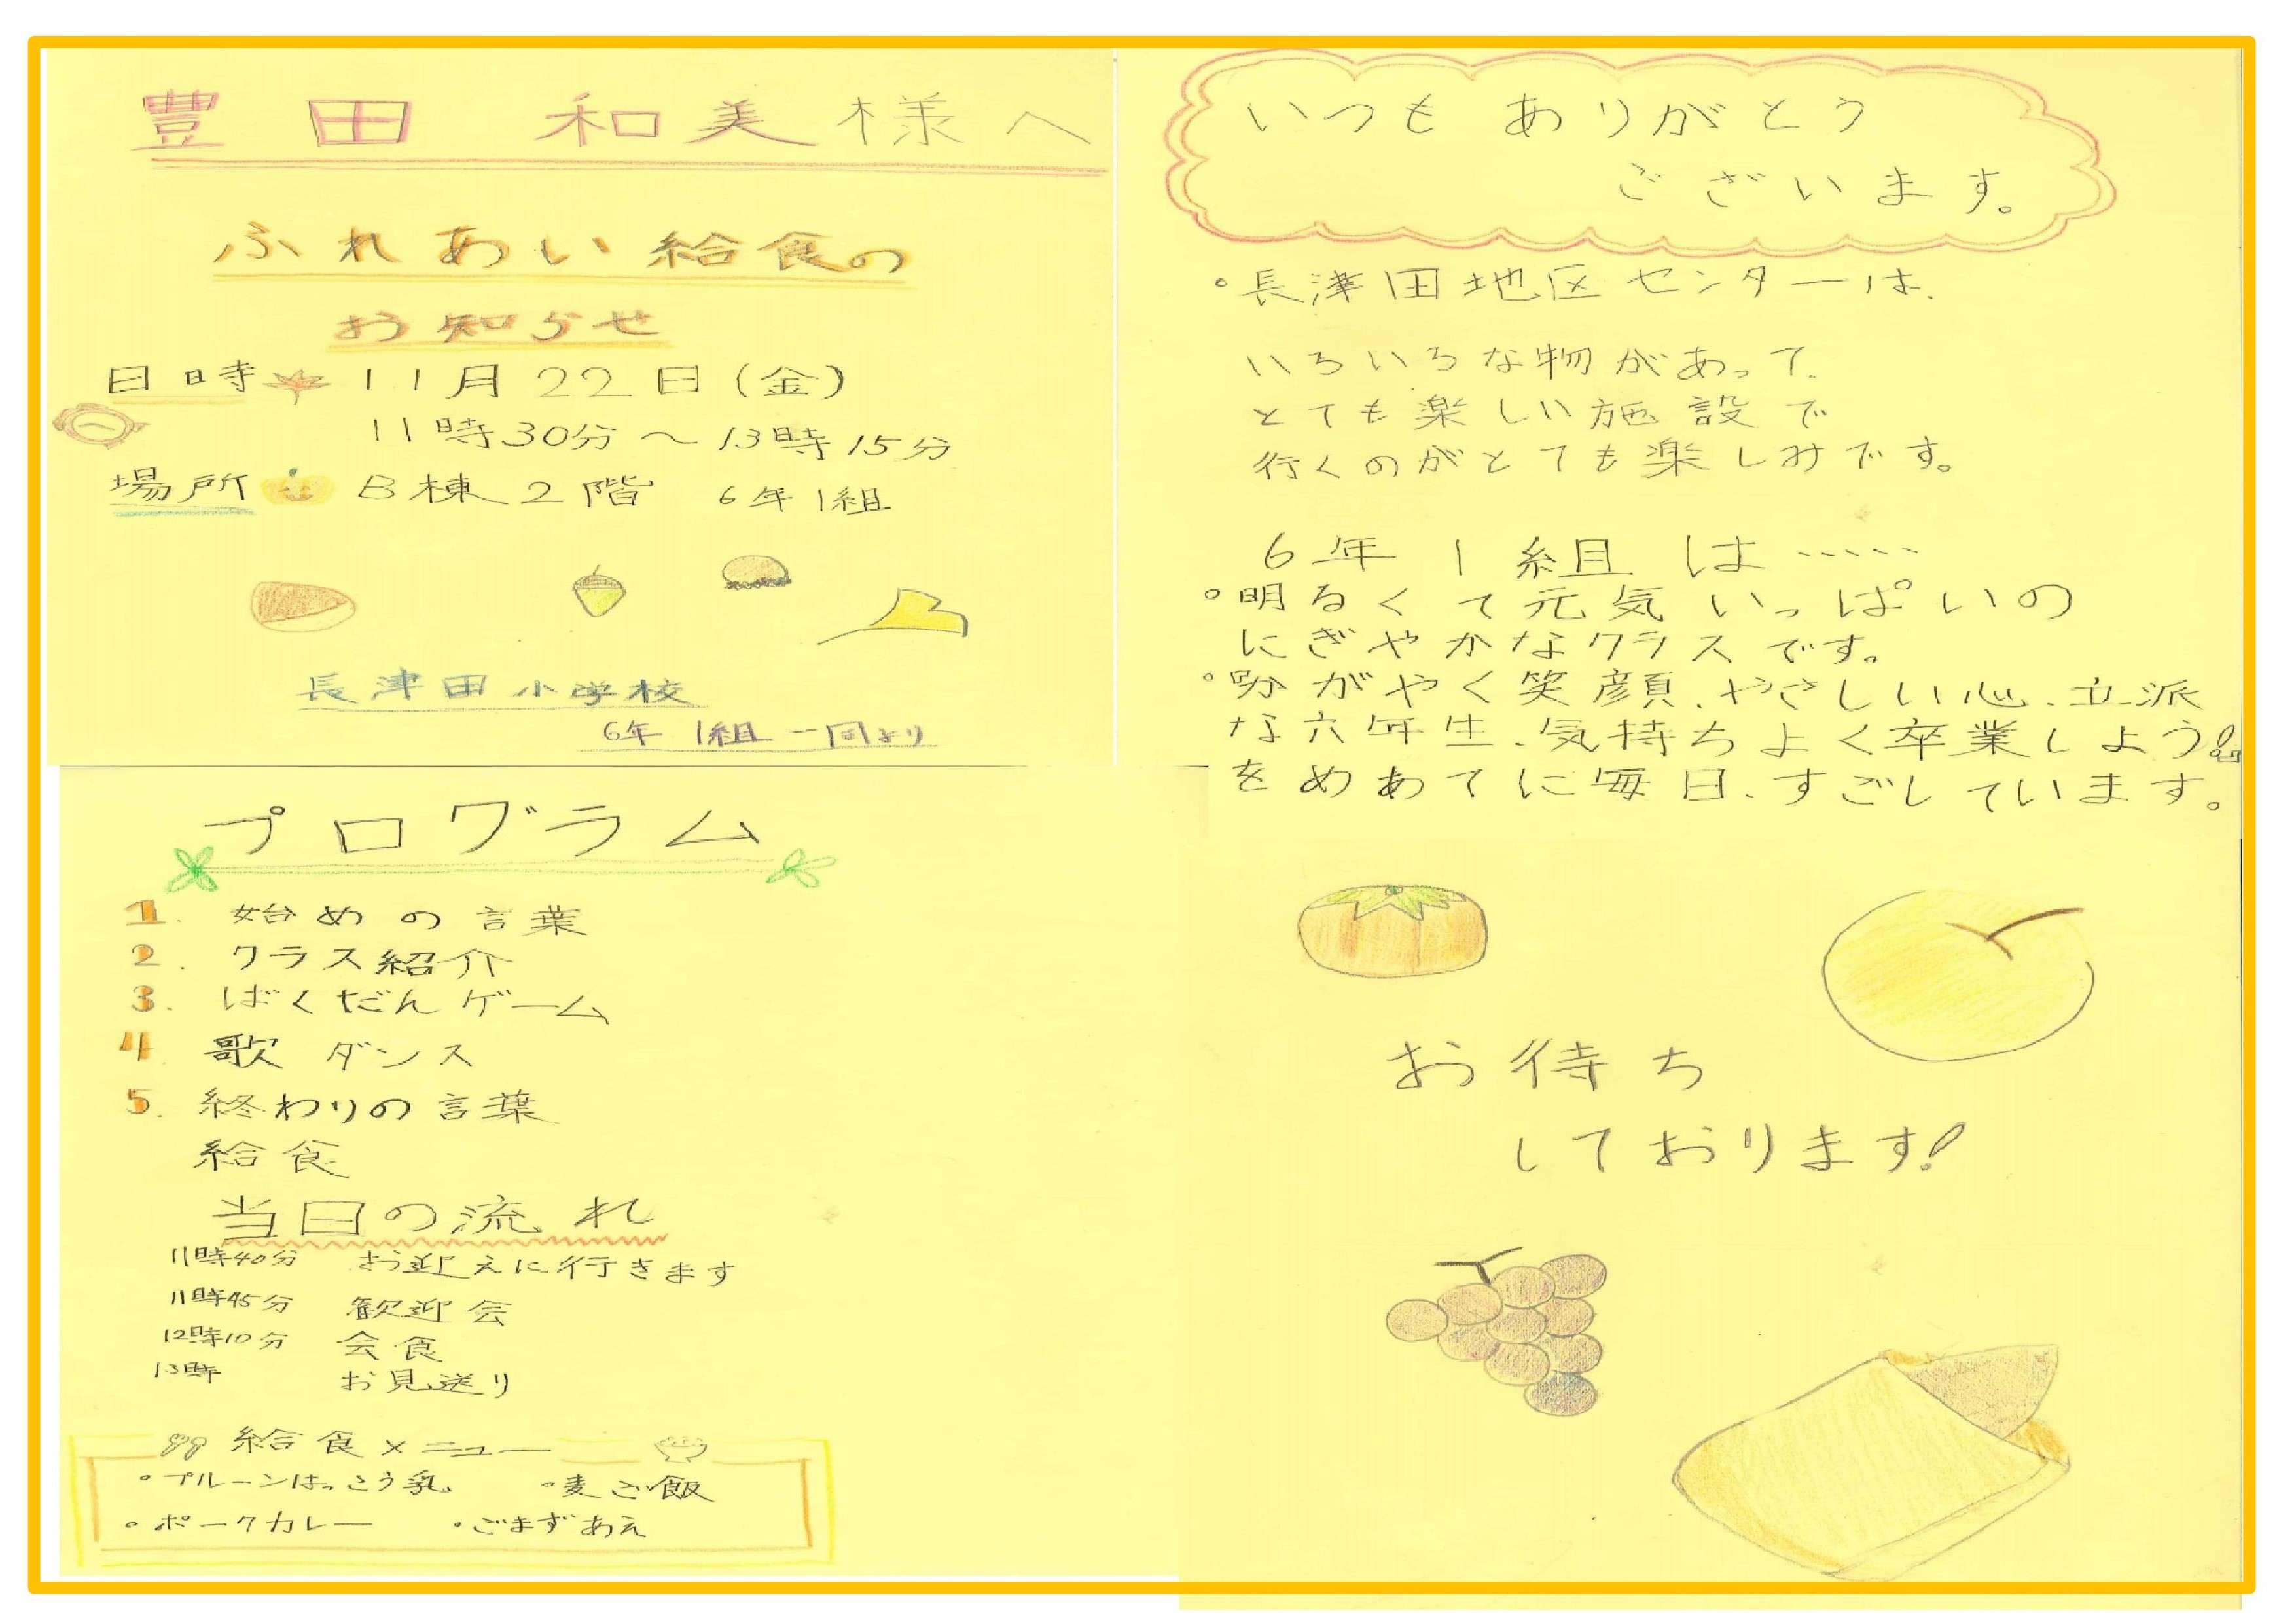 豊田 和美様へ
ふれあい給食の
お知らせ
日時 11月22日(金)
11時30分～13時15分
場所 B棟2階 6年1組
長津田小学校
6年1組一同より
いつもありがとう
ございます。
・長津田地区センターは、
いろいろな物があって、
とても楽しい施設で
行くのがとても楽しみです。
6年1組は……
・明るくて元気いっぱいの
にぎやかなクラスです。
がやく笑顔、やさしい心、立派
な六年生、気持ちよく卒業しよう
をめあてに毎日、すごしています。
プログラム
1. 始めの言葉
2. クラス紹介
3. ばくだんゲーム
4. 歌 ダンス
5. 終わりの言葉
給食
当日の流れ
11時40分 お迎えに行きます
11時45分 歓迎会
12時10分 会食
13時 お見送り
給食メニュー
・プルーンはっこう乳 ・麦ご飯
・ポークカレー ・ごまずあえ
お待ち
しております!